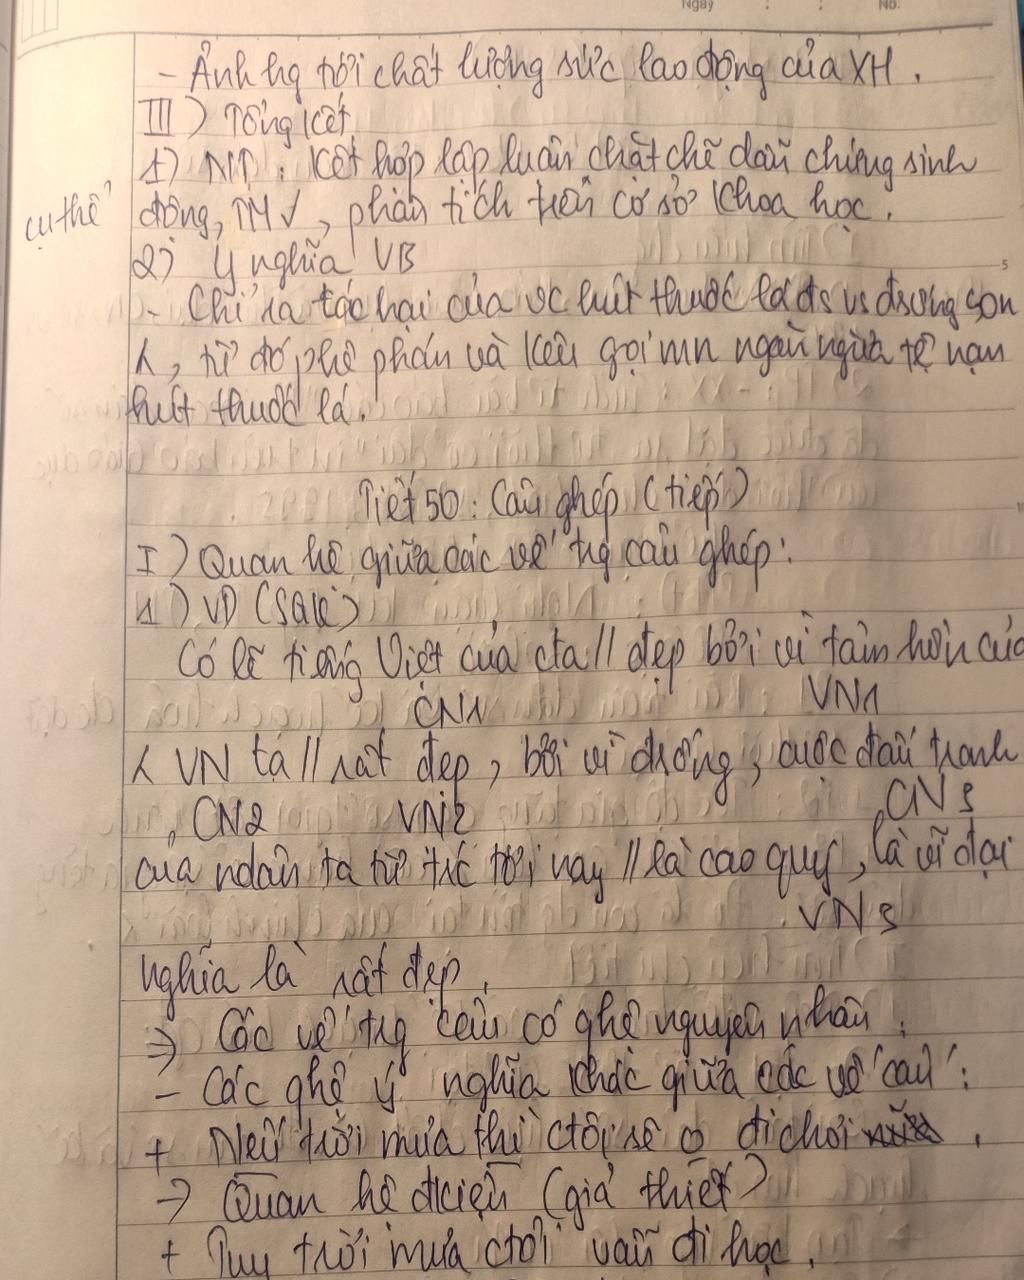 Ngày : : No.
- Ảnh hg tới chất lượng sức lao động của XH.
III) Tổng kết
1) NT: Kết hợp lập luận chặt chẽ dẫn chứng sinh
cụ thể động, TM √, phân tích trên cơ sở khoa học.
2) Ý nghĩa VB
- Chỉ ra tác hại của vc hút thuốc lá đs vs đương son
, từ đó phê phán và kêu gọi mn ngăn ngừa tệ nạn
hút thuốc lá.
Tiết 50: Câu ghép (tiếp)
I) Quan hệ giữa các vế tg câu ghép:
1) VD (SGK)
Có lẽ tiếng Việt của cta // đẹp bởi vì tâm hồn của
CN1 VN1
VN ta // rất đẹp, bởi vì đsống, cuộc đấu tranh
CN2 VN2 CN3
của ndân ta từ trc tới nay // là cao quý, là vĩ đại
VN3
nghĩa là rất đẹp.
=> Các vế tg câu có qhệ nguyên nhân.
- Các qhệ ý nghĩa khác giữa các vế câu:
+ Nếu trời mưa thì ctôi sẽ o đi chơi.
-> Quan hệ đkiện (giả thiết)
+ Tuy trời mưa ctôi vẫn đi học.